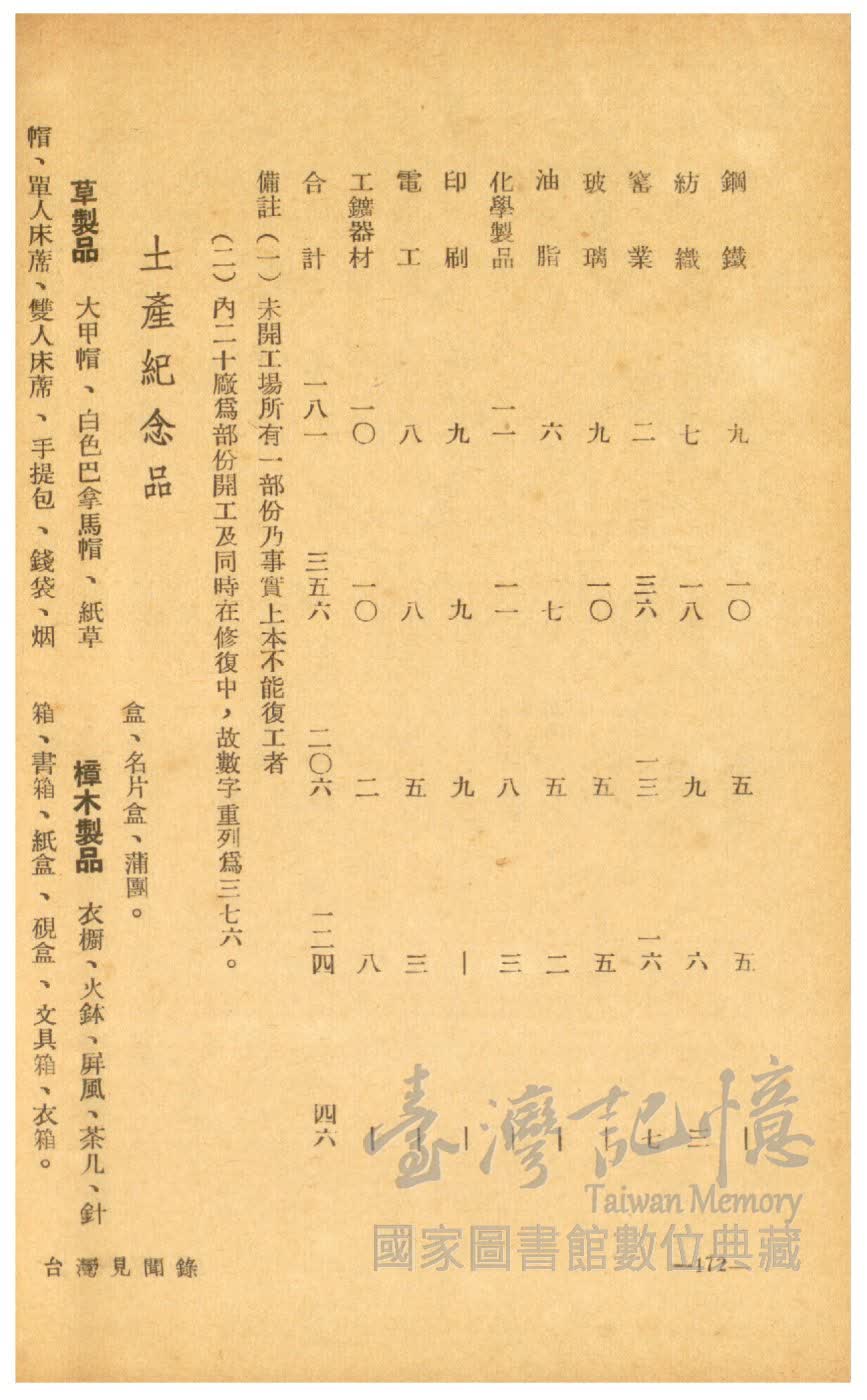 鋼鐵 九 一〇 五 五 —
紡織 七 一八 九 六 三
窰業 二 三六 一三 一六 七
玻璃 九 一〇 五 五 —
油脂 六 七 五 二 —
化學製品 一一 一一 八 三 —
印刷 九 九 九 — —
電工 八 八 五 三 —
工鑛器材 一〇 一〇 二 八 —
合計 一八一 三五六 二〇六 一二四 四六
備註(一)未開工場所有一部份乃事實上本不能復工者
(二)內二十廠爲部份開工及同時在修復中,故數字重列爲三七六。
土產紀念品
草製品 大甲帽、白色巴拿馬帽、紙草
帽、單人床蓆、雙人床蓆、手提包、錢袋、烟
盒、名片盒、蒲團。
樟木製品 衣櫥、火鉢、屏風、茶几、針
箱、書箱、紙盒、硯盒、文具箱、衣箱。
台灣見聞錄
—172—
臺灣記憶
Taiwan Memory
國家圖書館數位典藏